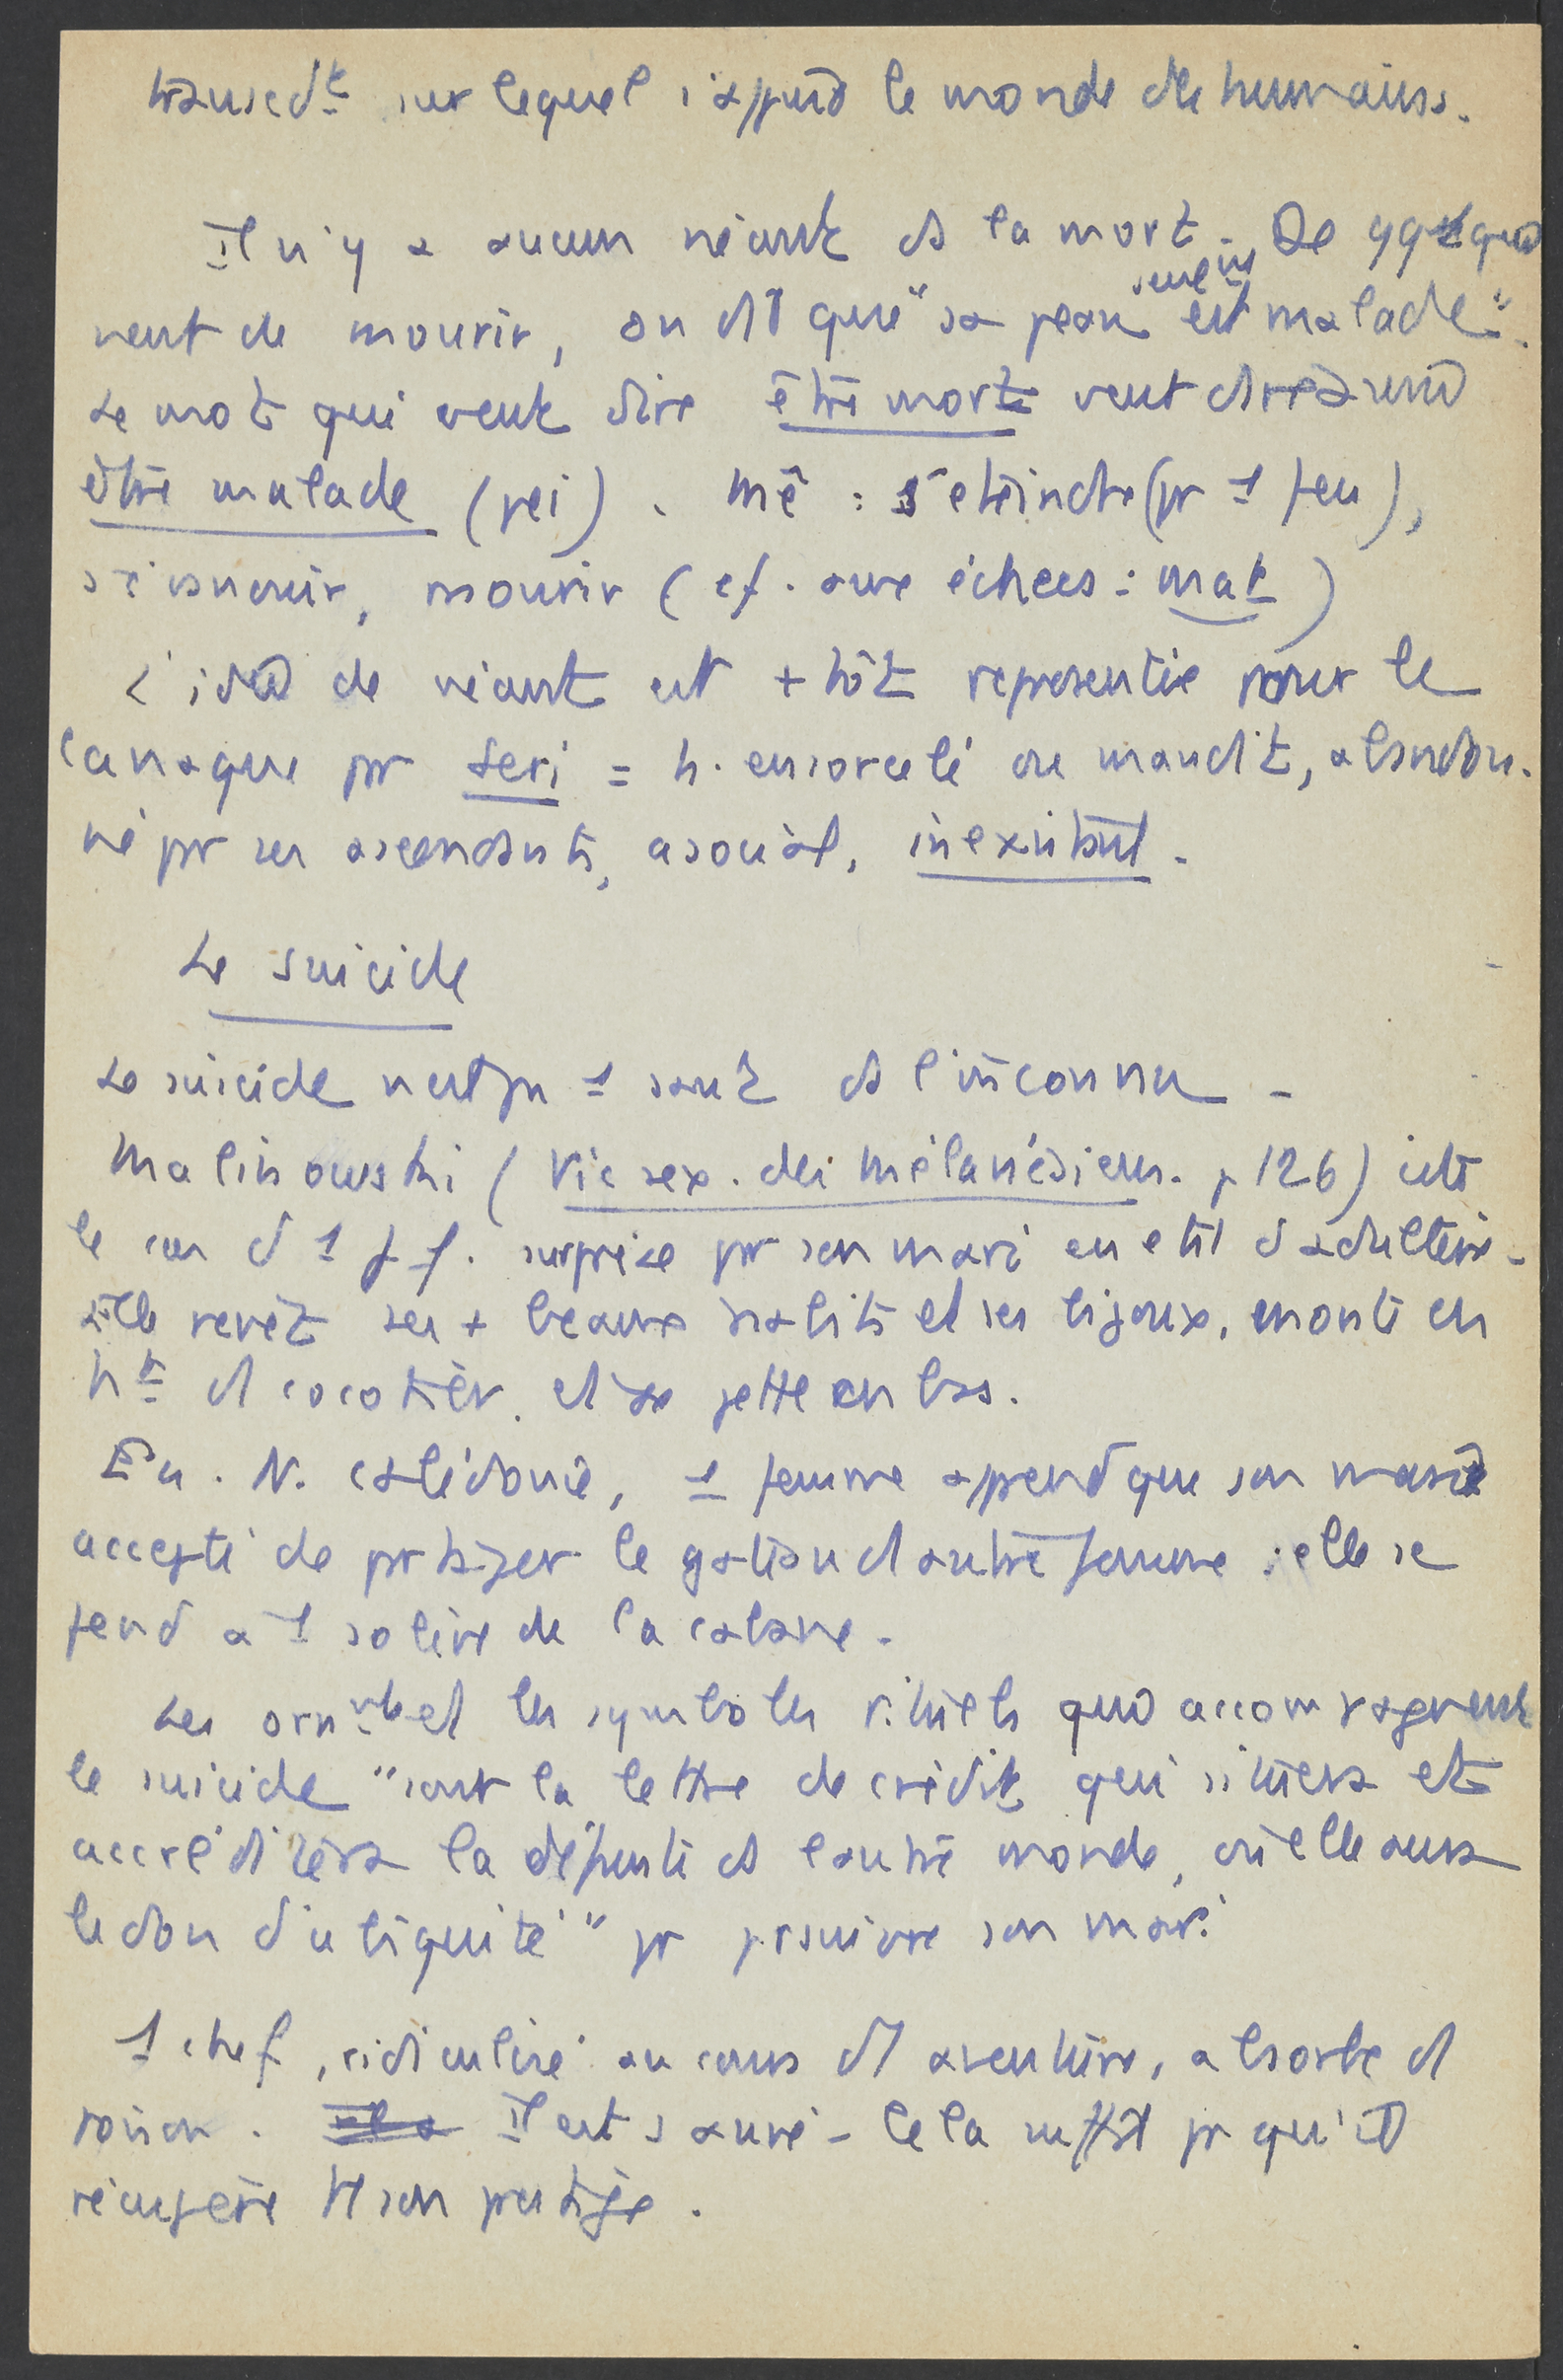 transcdt sur lequel s'appuie le monde des humains.
Il n'y a aucun néant ds la mort. De qqu qui
seulemt
vent de mourir, on dit que "sa peau est malade".
Le mot qui veut dire être mort veut dire aussi
être malade (pei). mê : s'éteindre (pr 1 feu),
s'évanouir, mourir (cf. aux échecs : mat)
L'idée de néant est + tôt représentée pour le
canaque pr seri = h. ensorcelé ou maudit, abandon-
né pr ses ascendants, asocial, inexistant.
Le suicide
Le suicide n'est pas 1 saut ds l'inconnu -
Malinowski (Vie sex. des Mélanésiens. p 126) cite
le cas d'1 j f. surprise pr son mari en état d'adultère.
Elle revêt ses + beaux habits et ses bijoux, monte en
ht d'1 cocotier et se jette en bas.
En N. Calédonie, 1 femme apprend que son mari a
accepté de partager le gateau d'1 autre femme : elle se
pend à 1 solive de la cabane.
Les ornmts et les symboles rituels qui accompagnent
le suicide "sont la lettre de crédit qui situera et
accréditera la défunte ds l'autre monde, où elle aura
le don d'ubiquité" pr prsuivre son mari
1 chef, ridiculisé au cours d'1 aventure, absorbe du
poison. Il a Il est sauvé - Cela suffit pr qu'il
récupère tt son prestige.